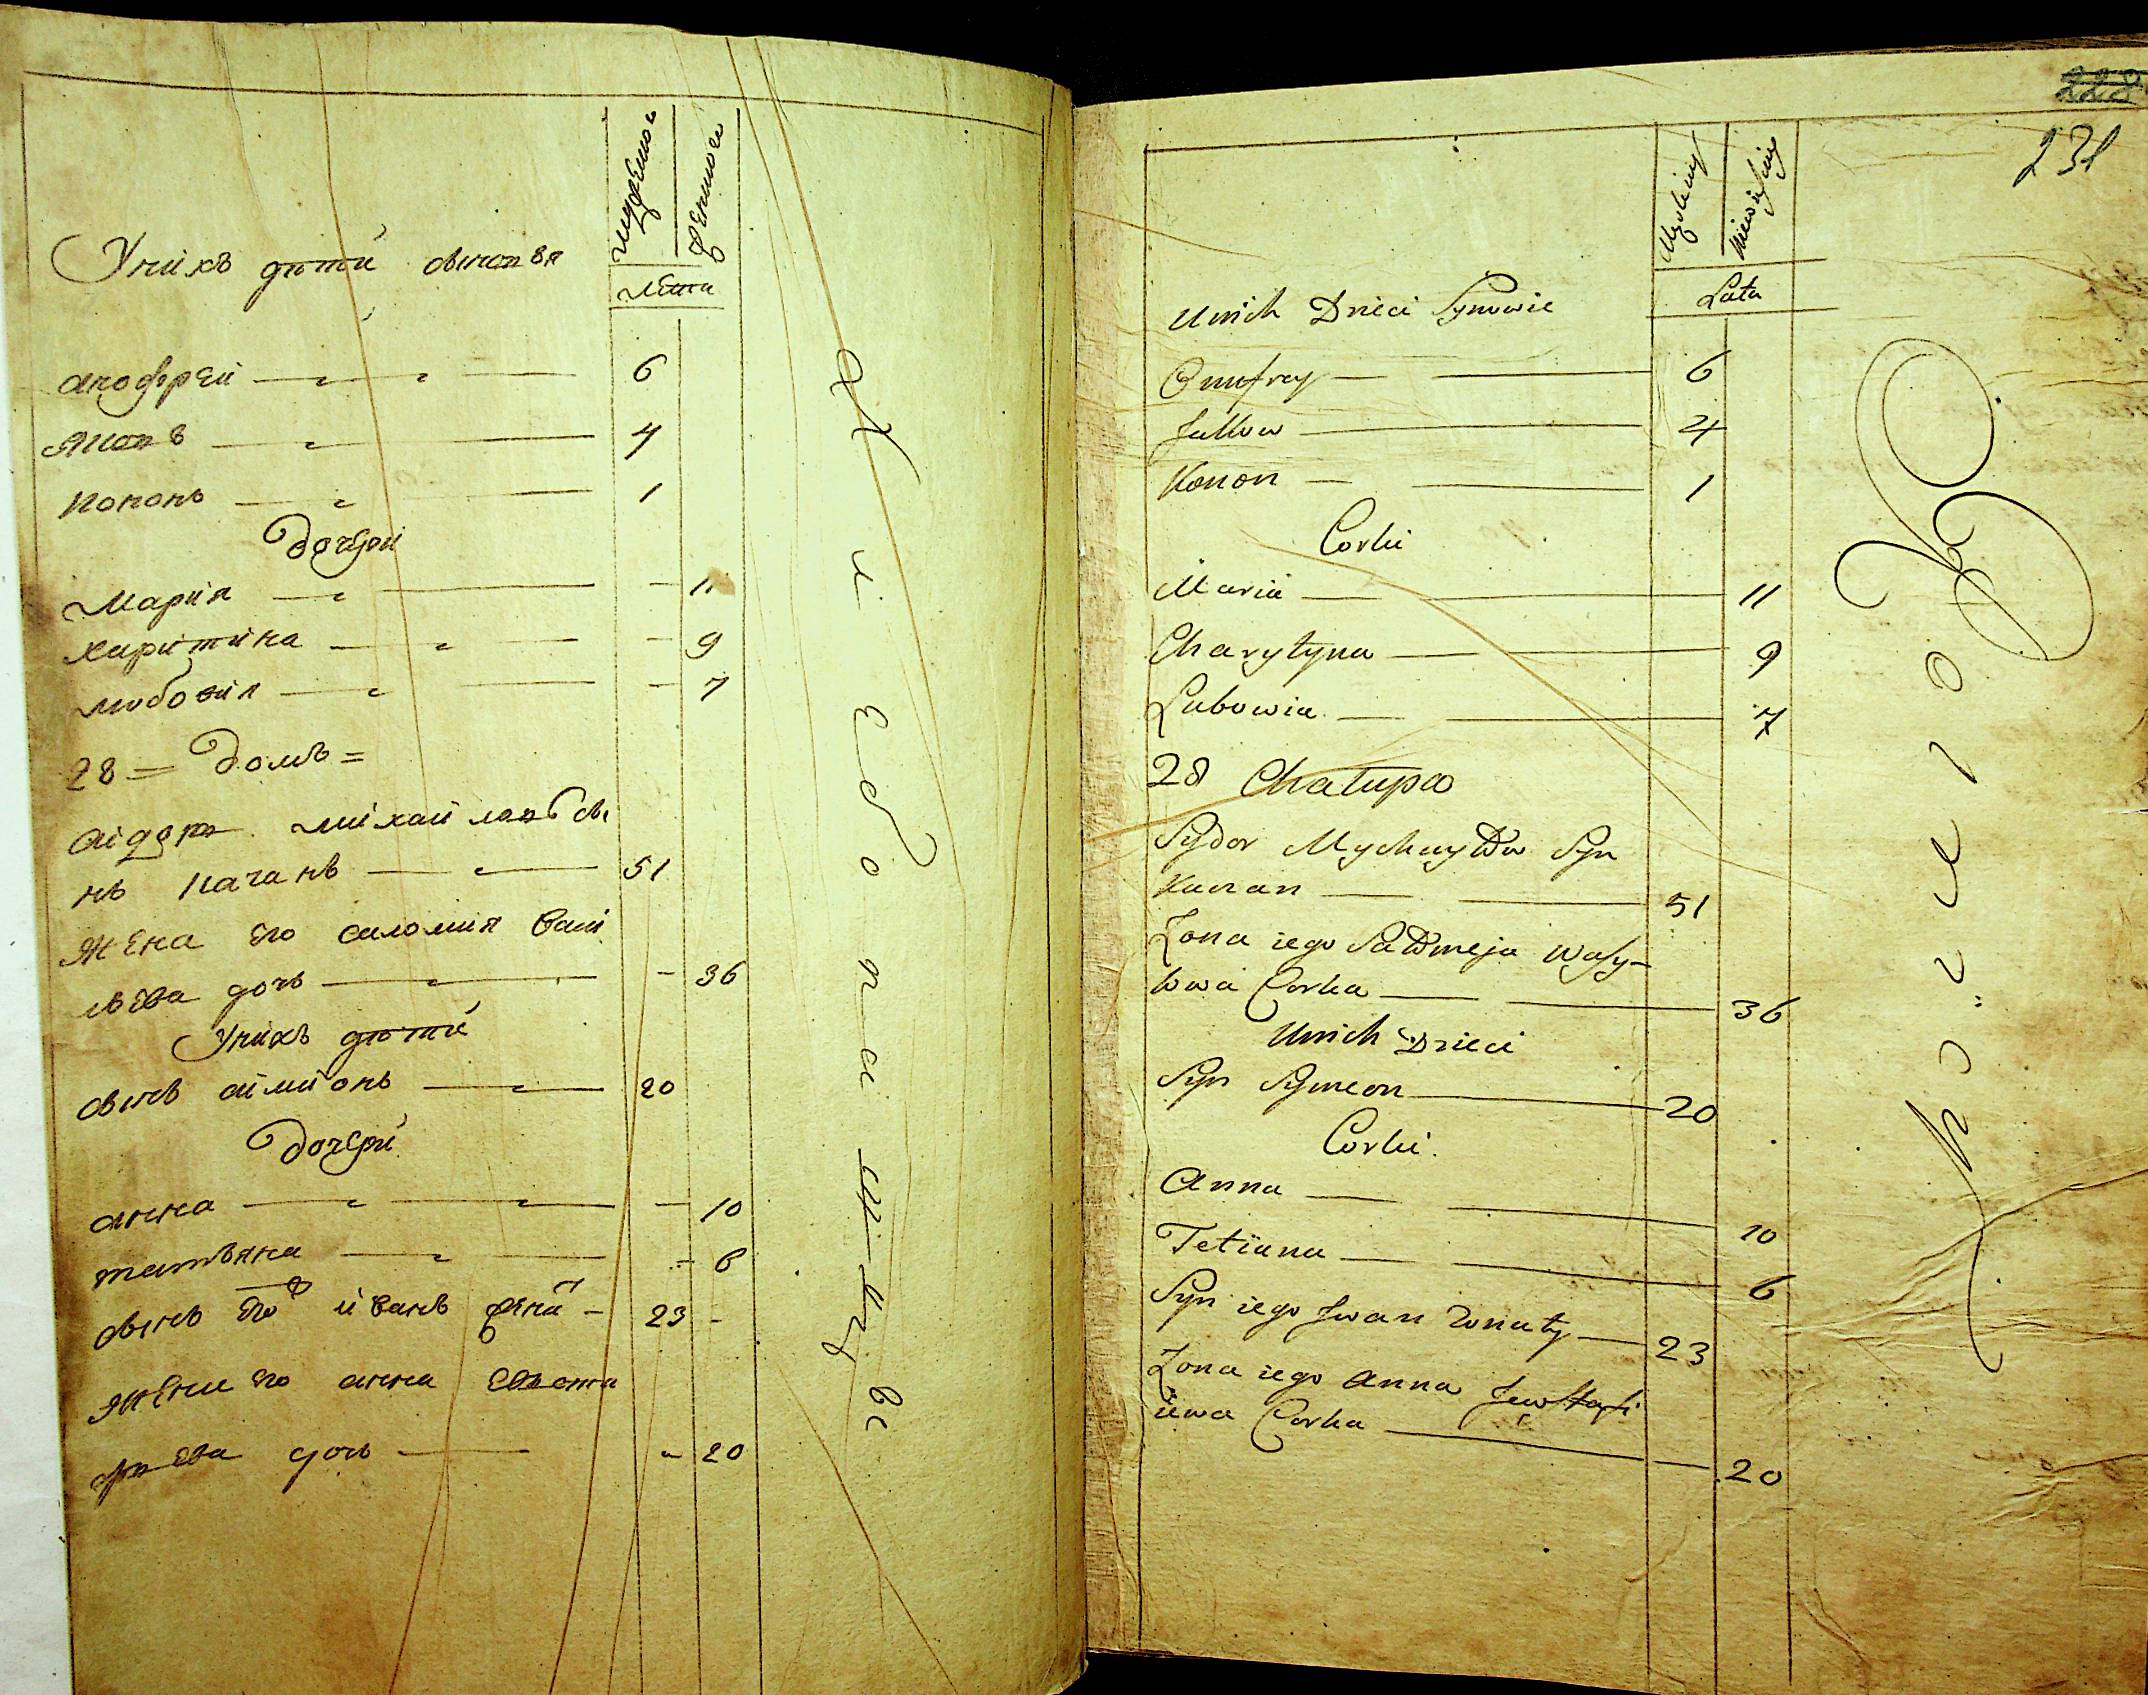 Унихъ дѣти сыновя
Лѣта
анофрей 6
Яковъ 4
кононъ 1
дочери
Мария 11
харитина 9
любовия 7
28 = домъ =
сидоръ михайловъ сы
нъ качанъ 51
жена его саломия васи
льева дочь 36
Унихъ дѣти
сынъ симионъ 20
дочери
анна 10
татьяна 6
сынъ его иванъ жена 23
жена его анна евста
фиева дочь 20
228
231
Męzkiey
Niewieskiey
Lata
Unich Dzieci Synowie
Onufrey 6
Jakow 4
Konon 1
Corki
Maria 11
Charytyna 9
Lubowia 7
28 Chałupa
Sydor Mychayłow Syn
Kaczan 51
Zona iego Sałomeja Wasy-
lowa Corka 36
Unich Dzieci
Syn Symeon 20
Corki
Anna 10
Tetiana 6
Syn iego Jwan Zonaty 23
Zona iego Anna Jewstafi
iewa Corka 20